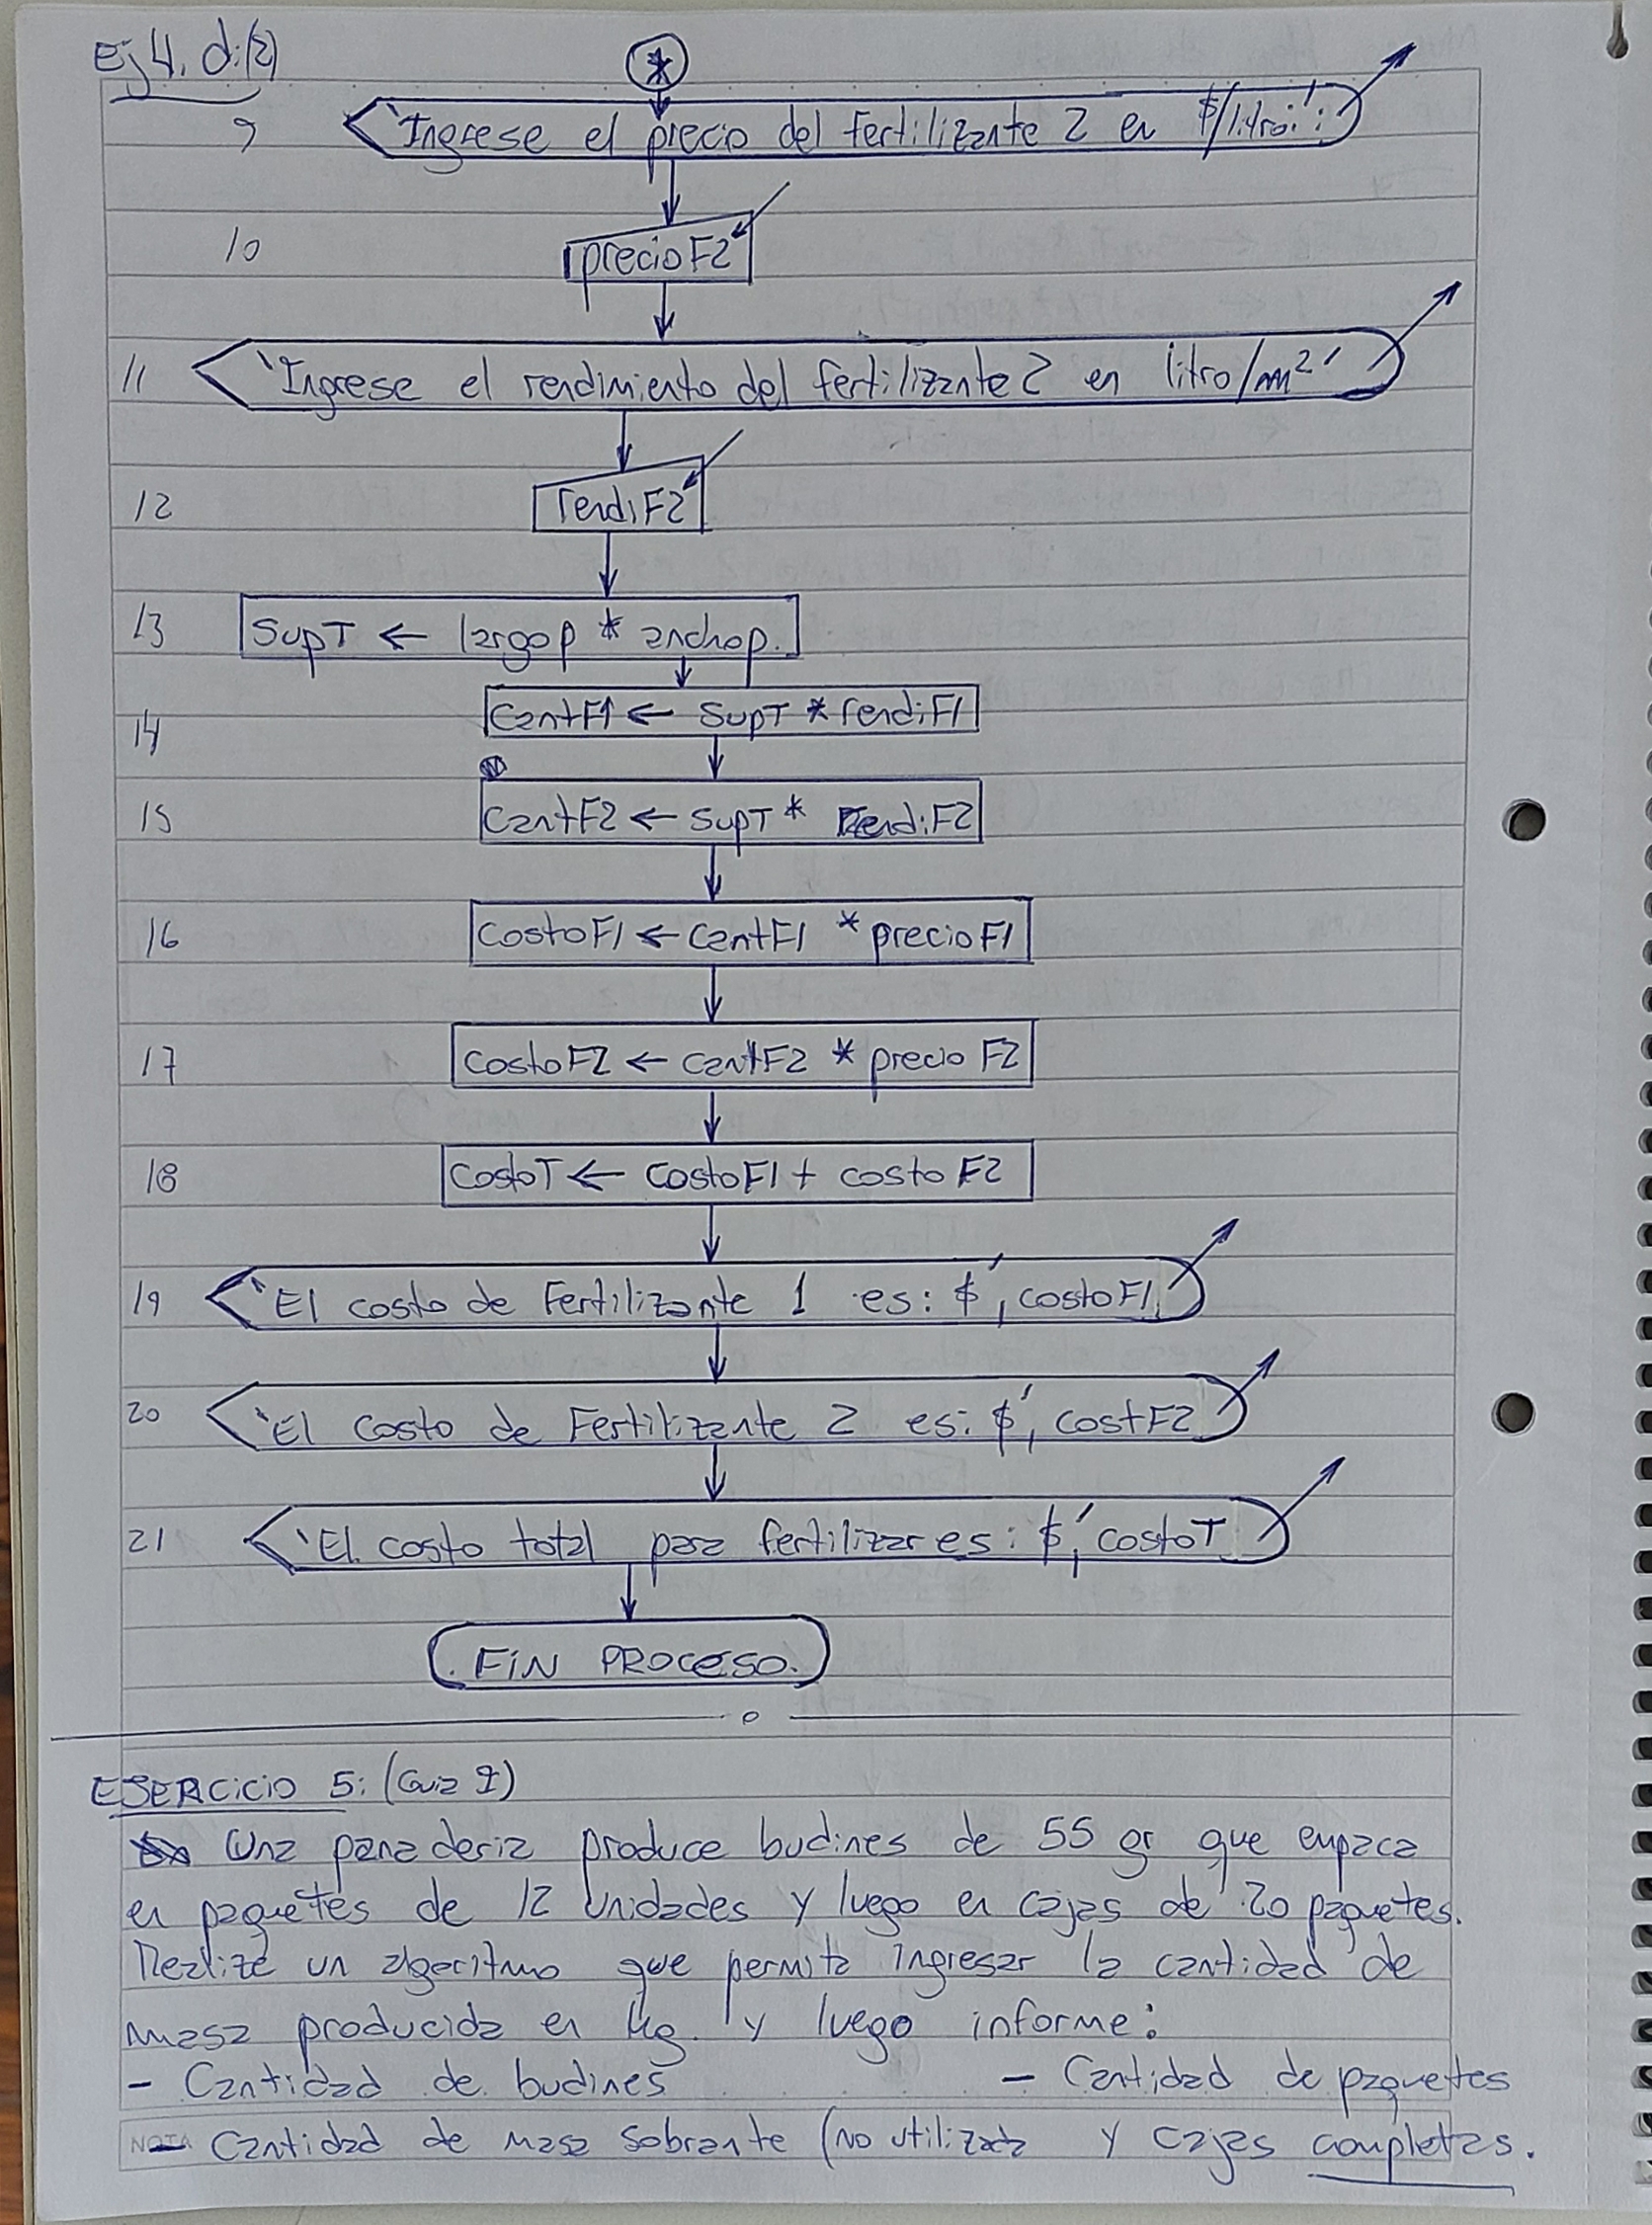 Ej 4. d.(2)
*
9 'Ingrese el precio del fertilizante 2 en $/litro:':
10 precioF2
11 'Ingrese el rendimiento del fertilizante 2 en litro/m²'
12 rendiF2
13 SupT ← largop * anchop.
14 CantF1 ← SupT * rendiF1
15 CantF2 ← SupT * RendiF2
16 CostoF1 ← CantF1 * precioF1
17 CostoF2 ← cantF2 * precio F2
18 CostoT ← CostoF1 + costo F2
19 'El costo de Fertilizante 1 es: $', costoF1
20 'El Costo de Fertilizante 2 es: $', CostF2
21 'El costo total para fertilizar es: $', costoT
FIN PROCESO.
EJERCICIO 5: (Guia I)
Una panaderia produce budines de 55 gr que empaca
en paquetes de 12 unidades y luego en cajas de 20 paquetes.
Realize un algoritmo que permita ingresar la cantidad de
masa producida en Kg. y luego informe:
- Cantidad de budines - Cantidad de paquetes
NOTA - Cantidad de masa sobrante (no utilizada y cajas completas.